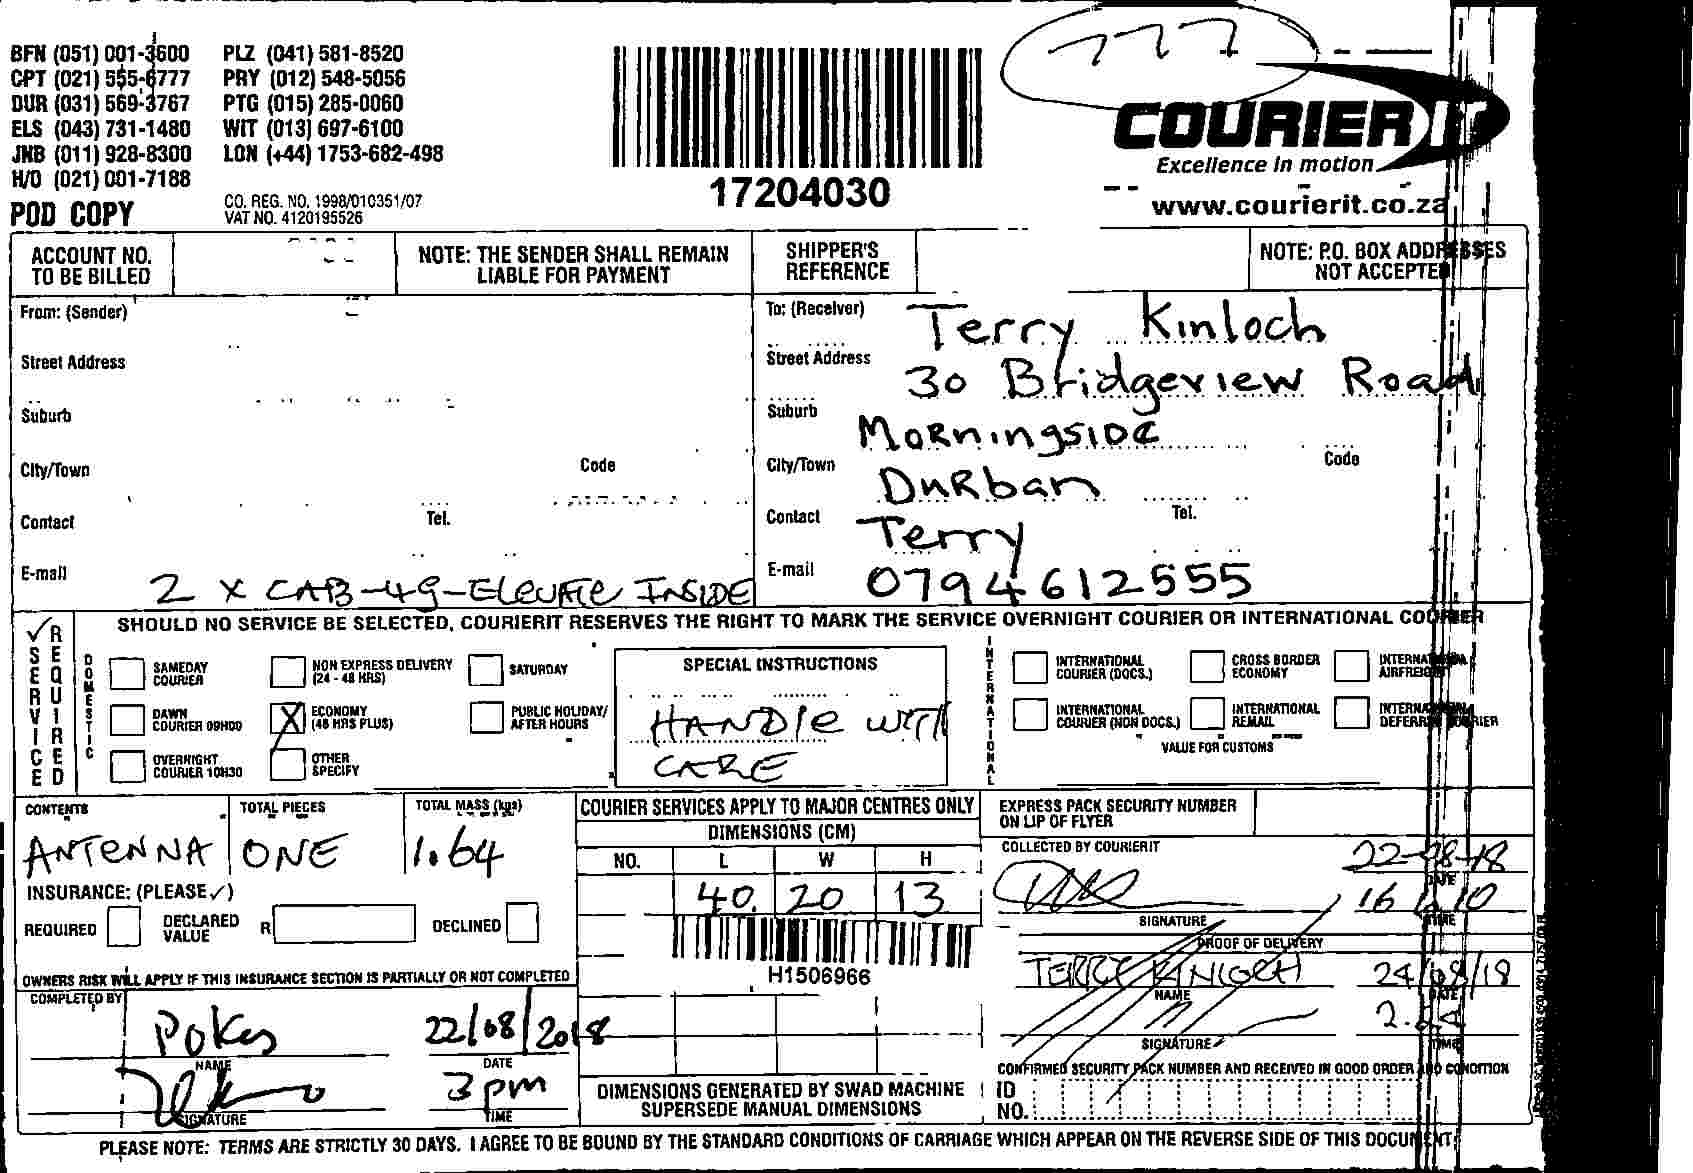 777
BFN (051) 001-3600 PLZ (041) 581-8520
CPT (021) 555-6777 PRY (012) 548-5056
DUR (031) 569-3767 PTG (015) 285-0060
ELS (043) 731-1480 WIT (013) 697-6100
JNB (011) 928-8300 LON (+44) 1753-682-498
H/O (021) 001-7188
POD COPY
CO. REG. NO. 1998/010351/07
VAT NO. 4120195526
17204030
COURIER IT
Excellence in motion
www.courierit.co.za
ACCOUNT NO. TO BE BILLED
NOTE: THE SENDER SHALL REMAIN LIABLE FOR PAYMENT
SHIPPER'S REFERENCE
NOTE: P.O. BOX ADDRESSES NOT ACCEPTED
From: (Sender)
Street Address
Suburb
City/Town Code
Contact Tel.
E-mail
2 x CAB-49-Elevate INSIDE
To: (Receiver) Terry Kinloch
Street Address 30 Bridgeview Road
Suburb Morningside
City/Town Durban Code
Contact Terry Tel.
E-mail 0794612555
SHOULD NO SERVICE BE SELECTED, COURIERIT RESERVES THE RIGHT TO MARK THE SERVICE OVERNIGHT COURIER OR INTERNATIONAL COURIER
✓ SERVICE REQUIRED
DOMESTIC
SAMEDAY COURIER
NON EXPRESS DELIVERY (24 - 48 HRS)
SATURDAY
DAWN COURIER 09H00
X ECONOMY (48 HRS PLUS)
PUBLIC HOLIDAY/ AFTER HOURS
OVERNIGHT COURIER 10H30
OTHER SPECIFY
SPECIAL INSTRUCTIONS
HANDLE WITH
CARE
INTERNATIONAL
INTERNATIONAL COURIER (DOCS.)
CROSS BORDER ECONOMY
INTERNATIONAL AIRFREIGHT
INTERNATIONAL COURIER (NON DOCS.)
INTERNATIONAL REMAIL
INTERNATIONAL DEFERRED COURIER
VALUE FOR CUSTOMS
CONTENTS TOTAL PIECES TOTAL MASS (kgs)
ANTENNA ONE 1.64
INSURANCE: (PLEASE ✓)
REQUIRED DECLARED VALUE R DECLINED
OWNERS RISK WILL APPLY IF THIS INSURANCE SECTION IS PARTIALLY OR NOT COMPLETED
COMPLETED BY
Pokes 22/08/2018
NAME DATE
3pm
SIGNATURE TIME
COURIER SERVICES APPLY TO MAJOR CENTRES ONLY
DIMENSIONS (CM)
NO. L W H
40. 20 13
H1506966
DIMENSIONS GENERATED BY SWAD MACHINE
SUPERSEDE MANUAL DIMENSIONS
EXPRESS PACK SECURITY NUMBER
ON LIP OF FLYER
COLLECTED BY COURIERIT
22-08-18
DATE
16 10
SIGNATURE TIME
PROOF OF DELIVERY
TERRY KINLOCH 24/08/18
NAME DATE
SIGNATURE TIME
CONFIRMED SECURITY PACK NUMBER AND RECEIVED IN GOOD ORDER AND CONDITION
ID NO.
PLEASE NOTE: TERMS ARE STRICTLY 30 DAYS. I AGREE TO BE BOUND BY THE STANDARD CONDITIONS OF CARRIAGE WHICH APPEAR ON THE REVERSE SIDE OF THIS DOCUMENT